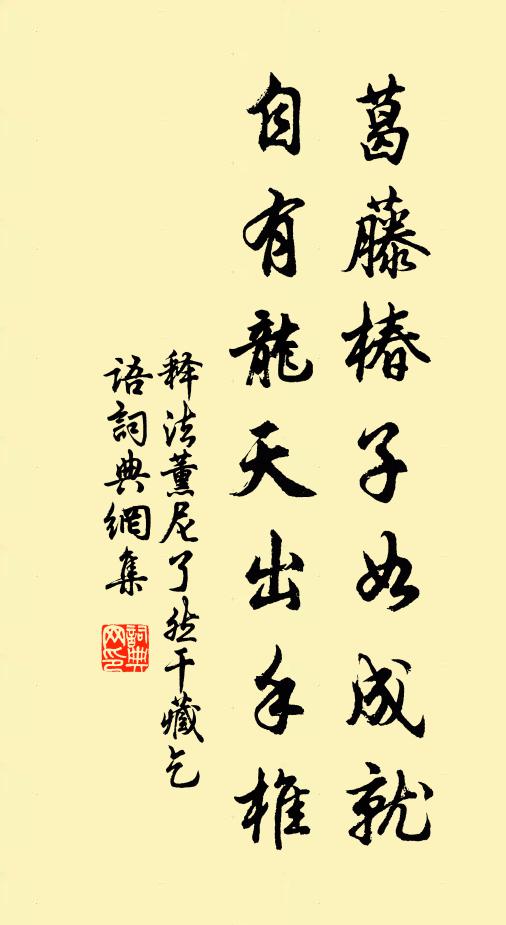 葛藤椿子如成就
自有龍天出手椎
释法薰尼了然干藏乞
语詞典網集
詞典網印